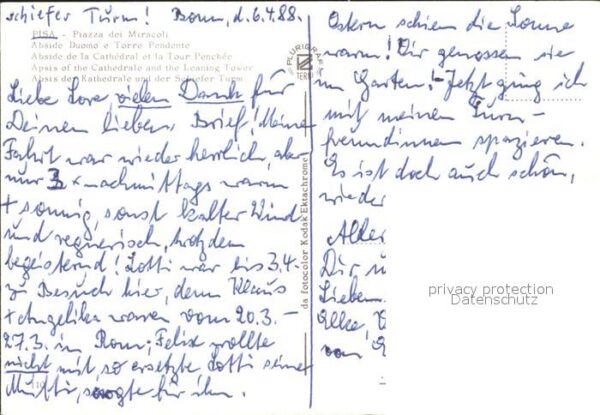 schiefer Turm! Bonn, d. 6.4.88.
PISA - Piazza dei Miracoli
Abside Duomo e Torre Pendente
Abside de la Cathédral et la Tour Penchée
Apsis of the Cathedrale and the Leaning Tower
Apsis der Kathedrale und der Schiefer Turm
Liebe Lore, vielen Dank für
Deinen lieben Brief! Meine
Fahrt war wieder herrlich, aber
nur 3 x nachmittags warm
+ sonnig, sonst kalter Wind
und regnerisch, trotzdem
begeisternd! Lotti war bis 3.4.
zu Besuch hier, denn Klaus
+ Angelika waren vom 20.3.-
27.3. in Rom; Felix wollte
nicht mit, so ersetzte Lotti seine
Mutti, sorgte für ihn.
PLURIGRAF
TERNI
da fotocolor Kodak Ektachrome
Ostern schien die Sonne
warm! Wir genossen sie
im Garten! Jetzt ging ich
mit meinen Turn-
freundinnen spazieren.
Es ist doch auch schön,
wieder
Aller
Dir u
Lieben
von
privacy protection
Datenschutz